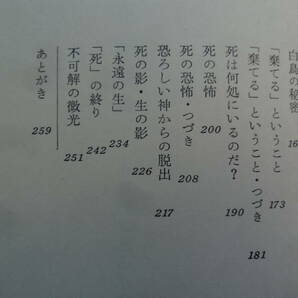 白鳥の秘密 16
「棄てる」ということ 173
「棄てる」ということ・つづき 181
死は何処にいるのだ? 190
死の恐怖 200
死の恐怖・つづき 208
恐ろしい神からの脱出 217
死の影・生の影 226
「永遠の生」 234
「死」の終り 242
不可解の微光 251
あとがき 259